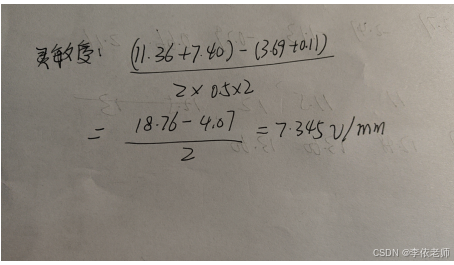 灵敏度: (11.36+7.40)-(3.69+0.11)
2×0.5×2
= 18.76-4.07
2
=7.345 V/mm
CSDN @李依老师